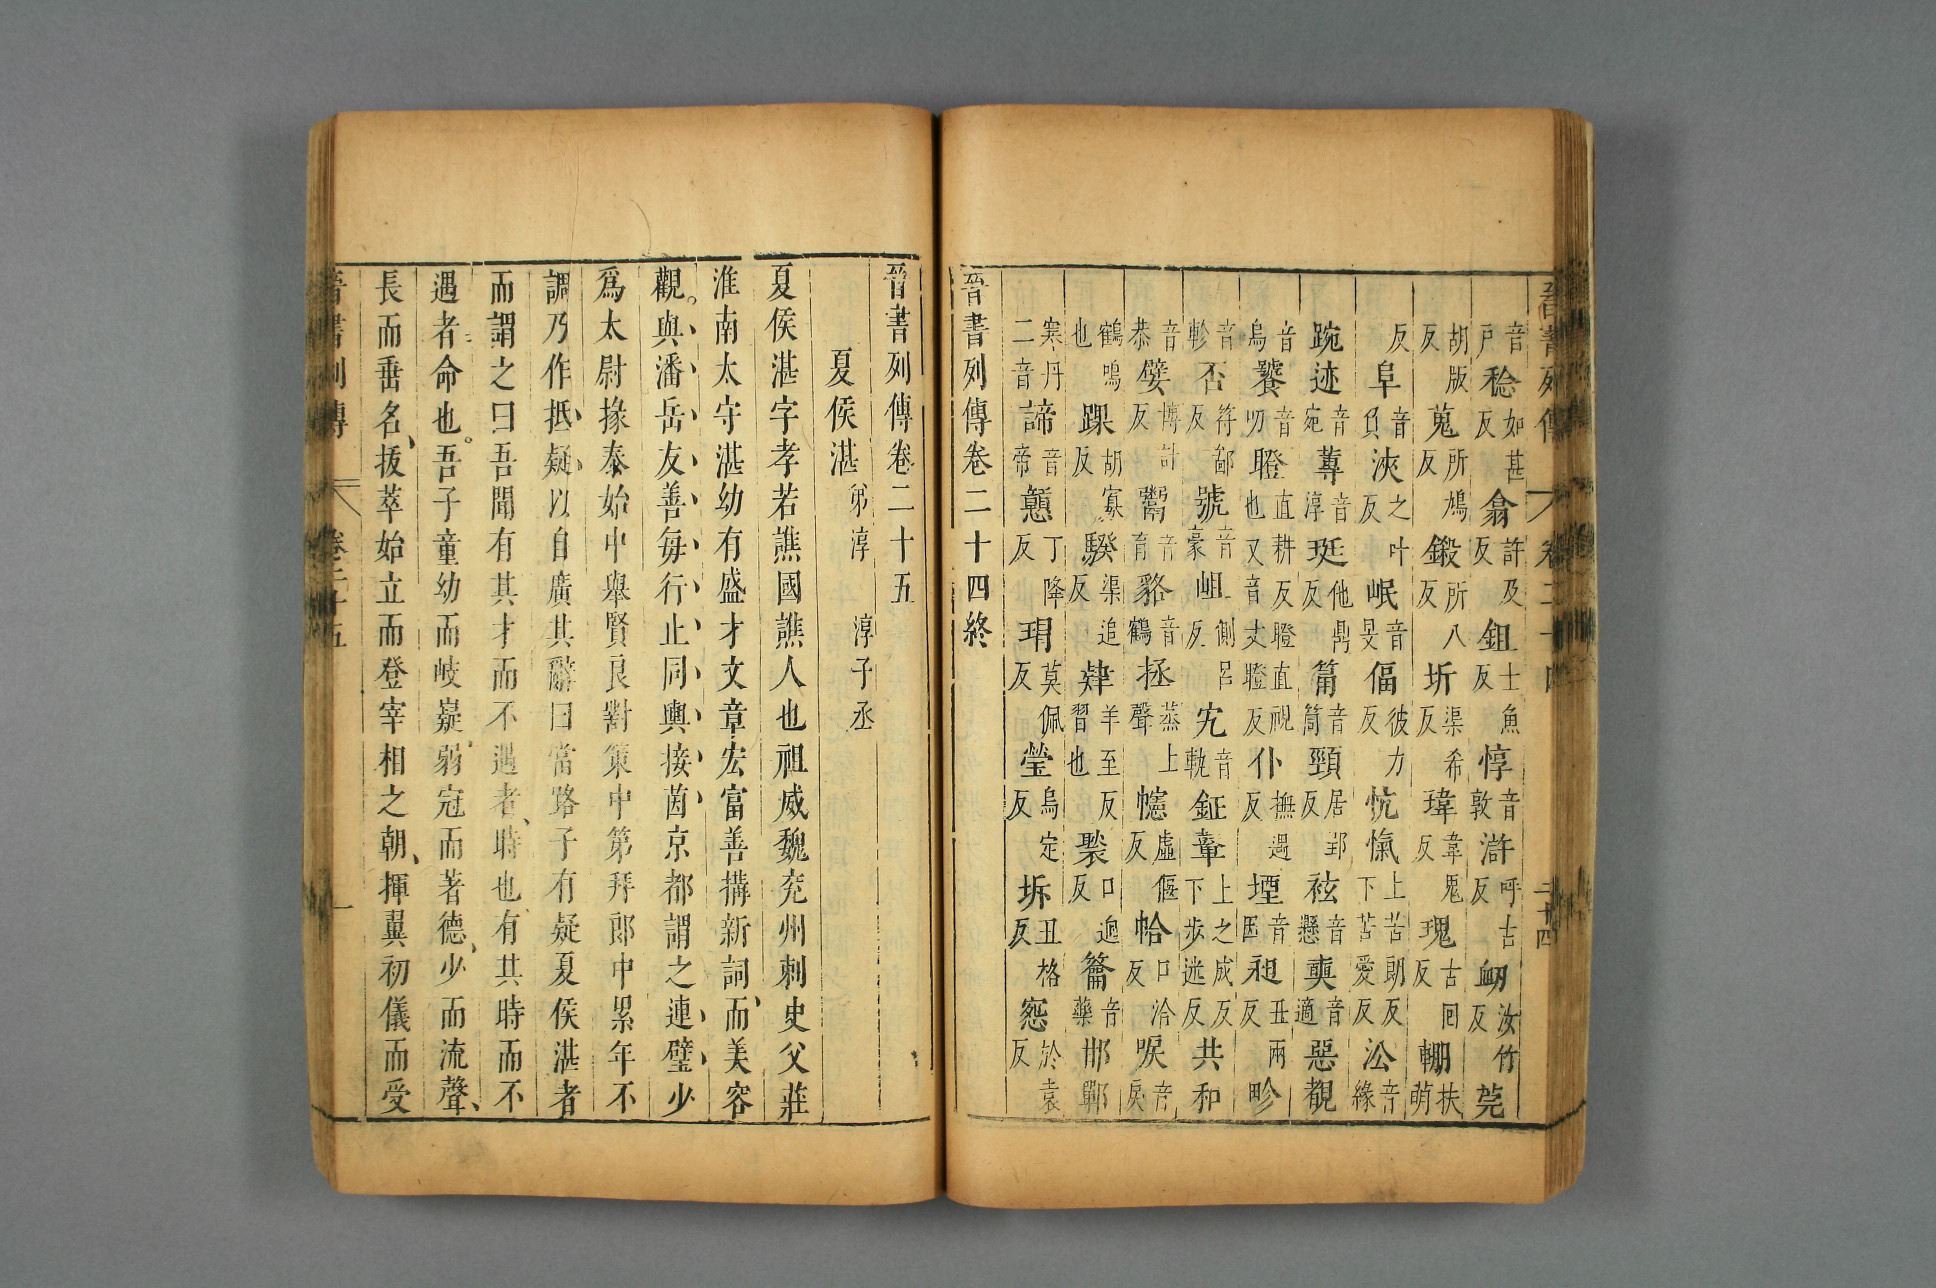 晉書列傳 卷二十四 二十四
音戶稔如甚反翕許及反鉏士魚反惇音敦滸呼古反衂汝竹反莞
胡版反蒐所鳩反鎩所八反圻渠希反瑋韋鬼反瑰古回反輣扶萌
反阜音負浹之叶反岷音旻偪彼力反忼愾上苦朗反下苦愛反㳂音緣
踠迹音宛蓴音淳珽他鼎反筩音筒頸居郢反袨音懸奭音適惡覩
音烏饕音叨瞪直耕反瞪直視也又音丈瞪反仆撫遇反堙音因昶丑兩反畛
音軫否符鄙反號音豪岨側呂反宄音軌鉦鼙上之成反下步迷反共和
音恭嬖博計反鬻音育貉音鶴拯蒸上聲幰虛偃反帢口洽反唳音戾
鶴鳴也踝胡寡反騤渠追反肄羊至反習也褧口迥反籥音藥邯鄲
寒丹二音諦音帝戇丁降反瑁莫佩反瑩烏定反坼丑格反怨於袁反
晉書列傳卷二十四終
晉書列傳卷二十五
夏侯湛 弟淳 淳子丞
夏侯湛字孝若譙國譙人也祖威魏兗州刺史父莊
淮南太守湛幼有盛才文章宏富善搆新詞而美容
觀。與潘岳友善每行止同輿接茵京都謂之連璧少
爲太尉掾泰始中舉賢良對策中第拜郎中累年不
調乃作抵疑以自廣其辭曰當路子有疑夏侯湛者
而謂之曰吾聞有其才而不遇者、時也有其時而不
遇者命也。吾子童幼而岐嶷、弱冠而著德、少而流聲、
長而垂名、拔萃始立而登宰相之朝、揮翼初儀而受
晉書列傳 卷二十五 一